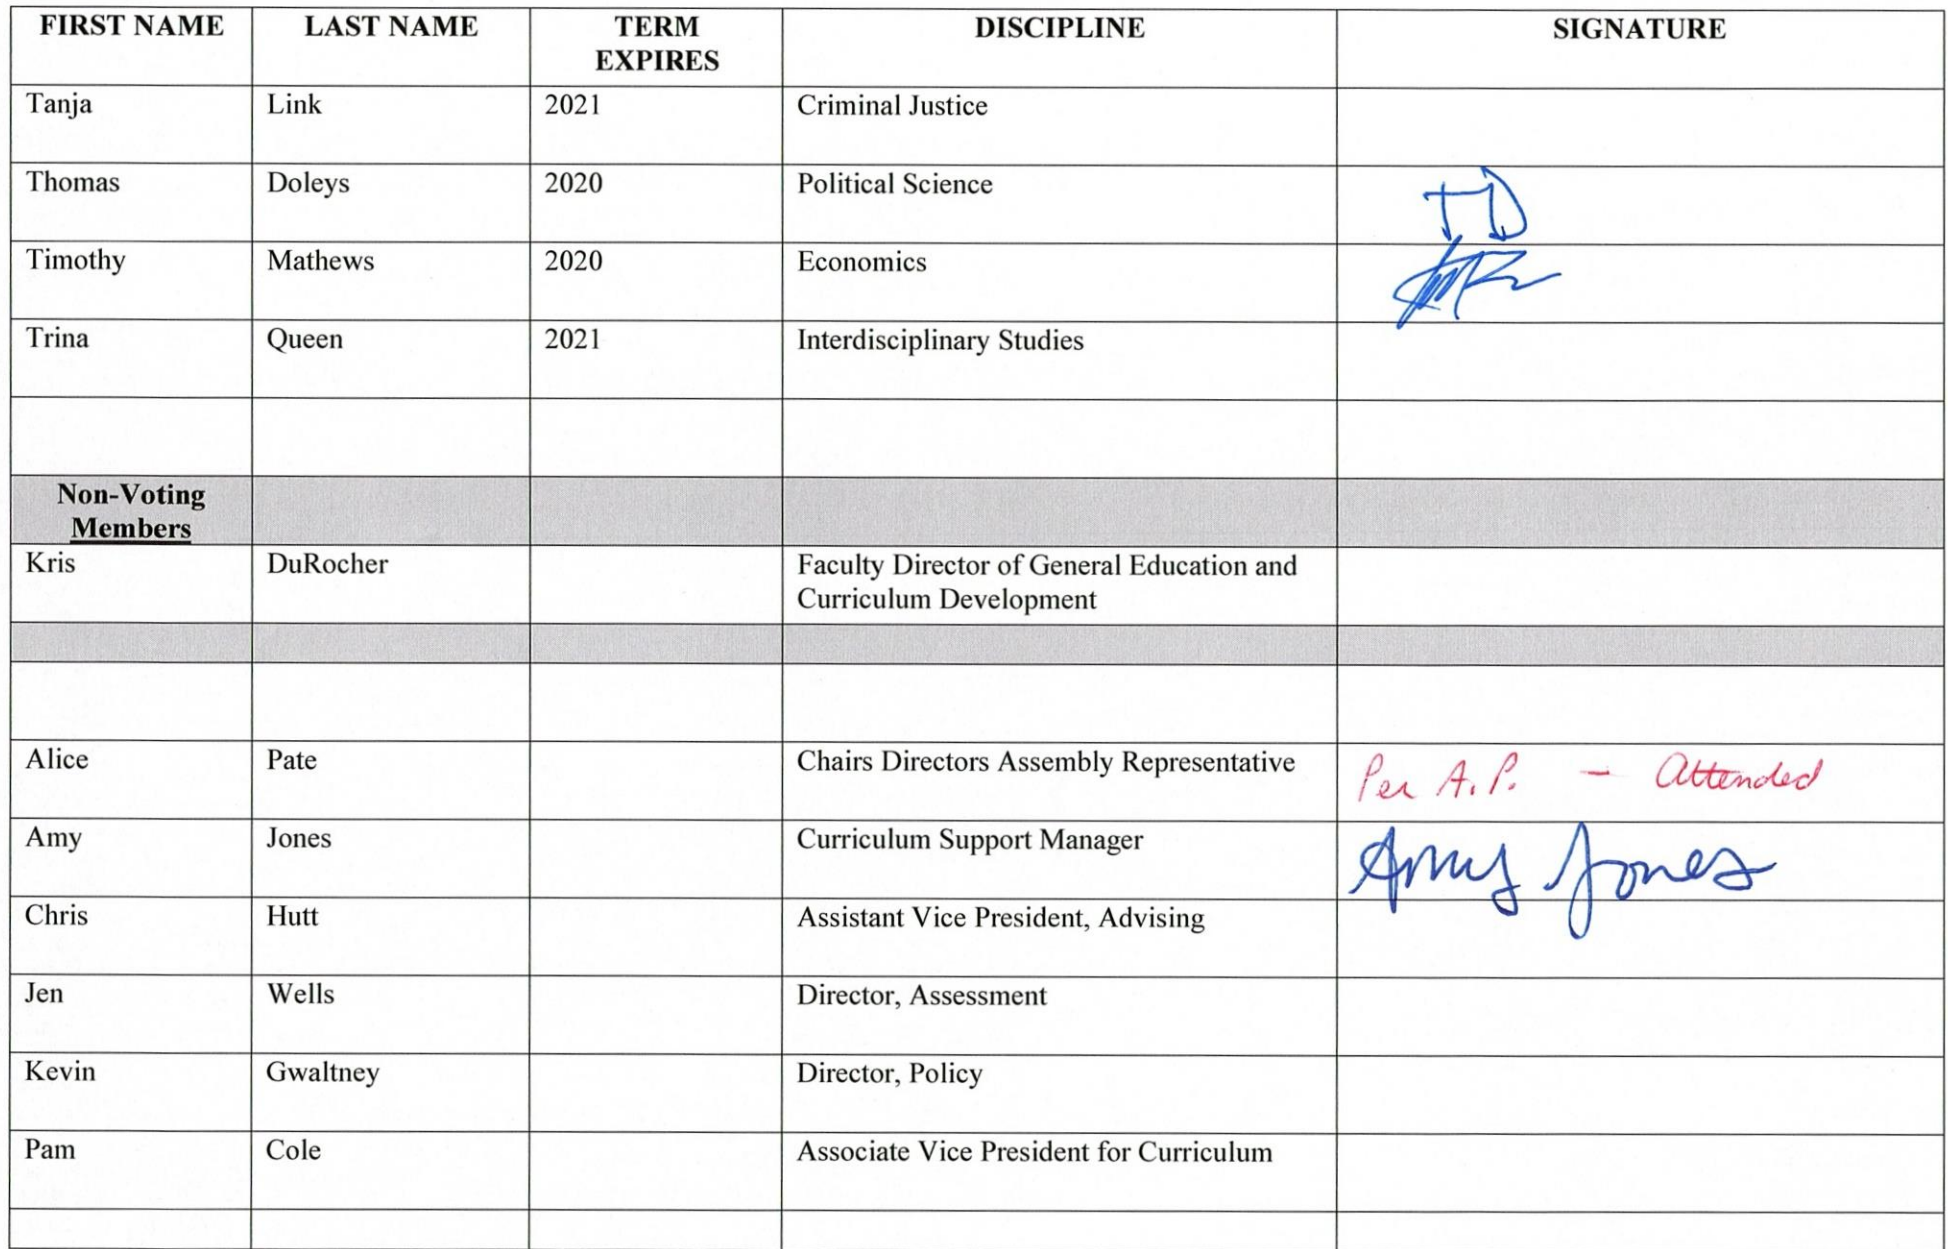 FIRST NAME LAST NAME TERM EXPIRES DISCIPLINE SIGNATURE
Tanja Link 2021 Criminal Justice
Thomas Doleys 2020 Political Science TD
Timothy Mathews 2020 Economics
Trina Queen 2021 Interdisciplinary Studies
Non-Voting
Members
Kris DuRocher Faculty Director of General Education and
Curriculum Development
Alice Pate Chairs Directors Assembly Representative Per A.P. - Attended
Amy Jones Curriculum Support Manager Amy Jones
Chris Hutt Assistant Vice President, Advising
Jen Wells Director, Assessment
Kevin Gwaltney Director, Policy
Pam Cole Associate Vice President for Curriculum